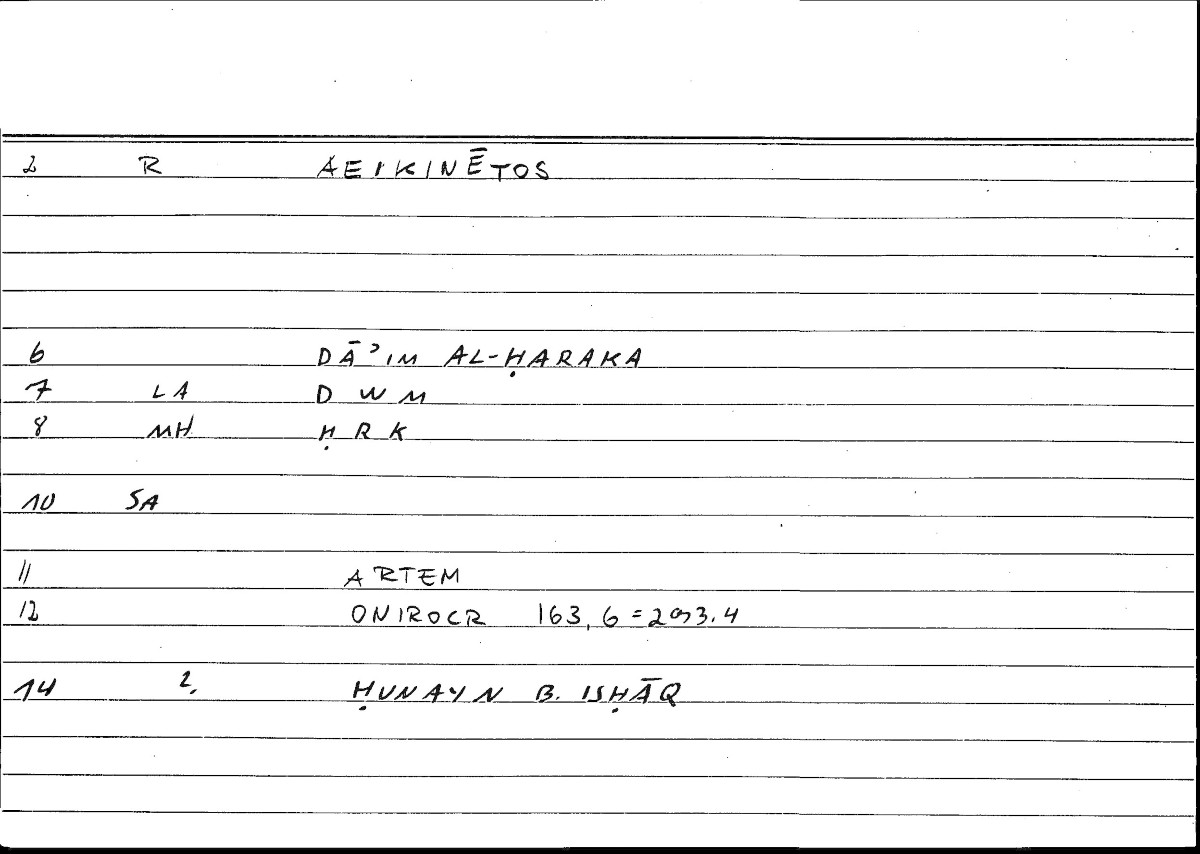 2 R AEIKINĒTOS
6 DĀʾIM AL-ḤARAKA
7 LA D W M
8 MH Ḥ R K
10 SA
11 ARTEM
12 ONIROCR 163, 6 =
14 2. ḤUNAYN B. ISḤĀQ